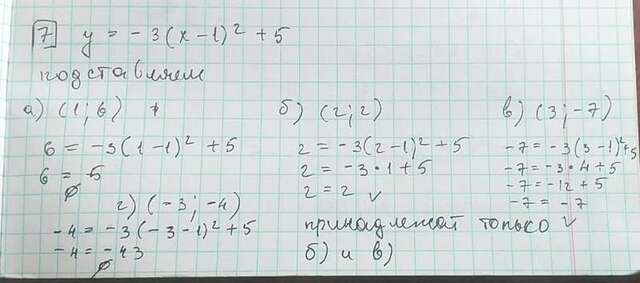 7 y = -3(x-1)² + 5
подставляем
а) (1; 6)
6 = -3(1-1)² + 5
6 = 5
∅
б) (2; 2)
2 = -3(2-1)² + 5
2 = -3·1+5
2 = 2 ✓
в) (3; -7)
-7 = -3(3-1)²+5
-7 = -3·4+5
-7 = -12+5
-7 = -7
✓
г) (-3; -4)
-4 = -3(-3-1)²+5
-4 = -43
∅
принадлежат только
б) и в)